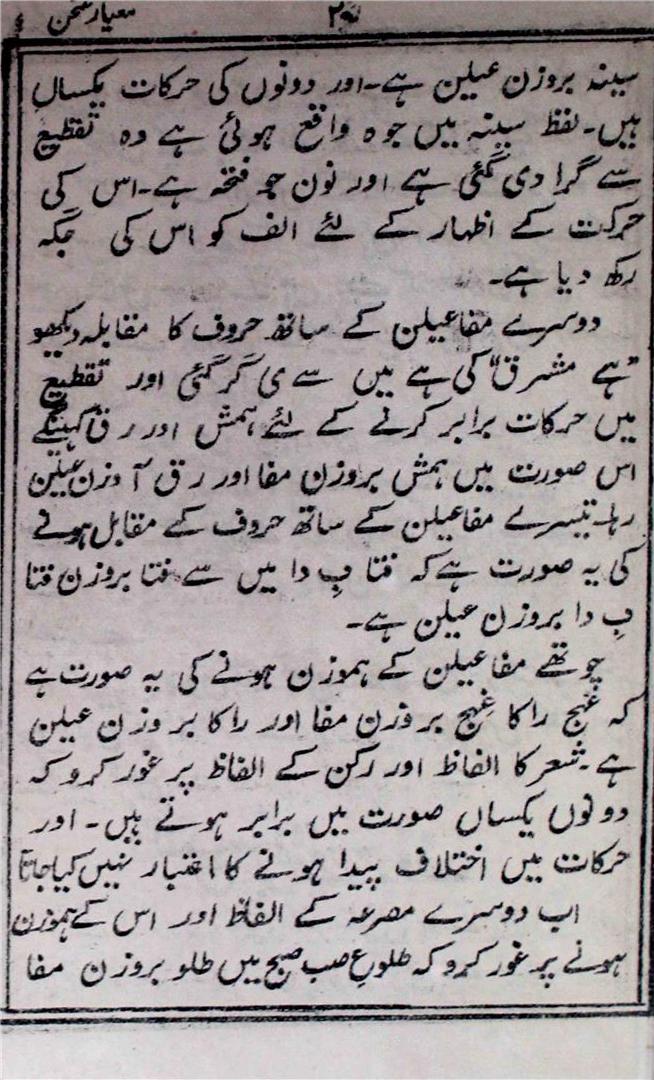 معیار سخن
سینہ بروزن عیلن ہے۔ اور دونوں کی حرکات یکساں
ہیں۔ لفظ سینہ میں جو ہ واقع ہوئی ہے وہ تقطیع
سے گرا دی گئی ہے اور نون جو فتحہ ہے۔ اس کی
حرکت کے اظہار کے لئے الف کو اس کی جگہ
رکھ دیا ہے۔
دوسرے مفاعیلن کے ساتھ حروف کا مقابلہ دیکھو
"ہے مشرق" کی ہے میں سے ی گر گئی اور تقطیع
میں حرکات برابر کرنے کے لئے ہمش اور رق آ کہینگے
اس صورت میں ہمش بروزن مفا اور رق آ وزن عیلن
رہا۔ تیسرے مفاعیلن کے ساتھ حروف کے مقابل ہونے
کی یہ صورت ہے کہ فتا بِ دا میں سے فتا بروزن فتا
بِ دا بروزن عیلن ہے۔
چوتھے مفاعیلن کے ہموزن ہونے کی یہ صورت ہے
کہ غِہج را کا غِہج بروزن مفا اور را کا بروزن عیلن
ہے۔ شعر کا الفاظ اور رکن کے الفاظ پر غور کرو کہ
دونوں یکساں صورت میں برابر ہوتے ہیں۔ اور
حرکات میں اختلاف پیدا ہونے کا اغتبار نہیں کیا جاتا
اب دوسرے مصرعہ کے الفاظ اور اس کے ہموزن
ہونے پر غور کرو کہ طلوعِ صب صبح میں طلو بروزن مفا